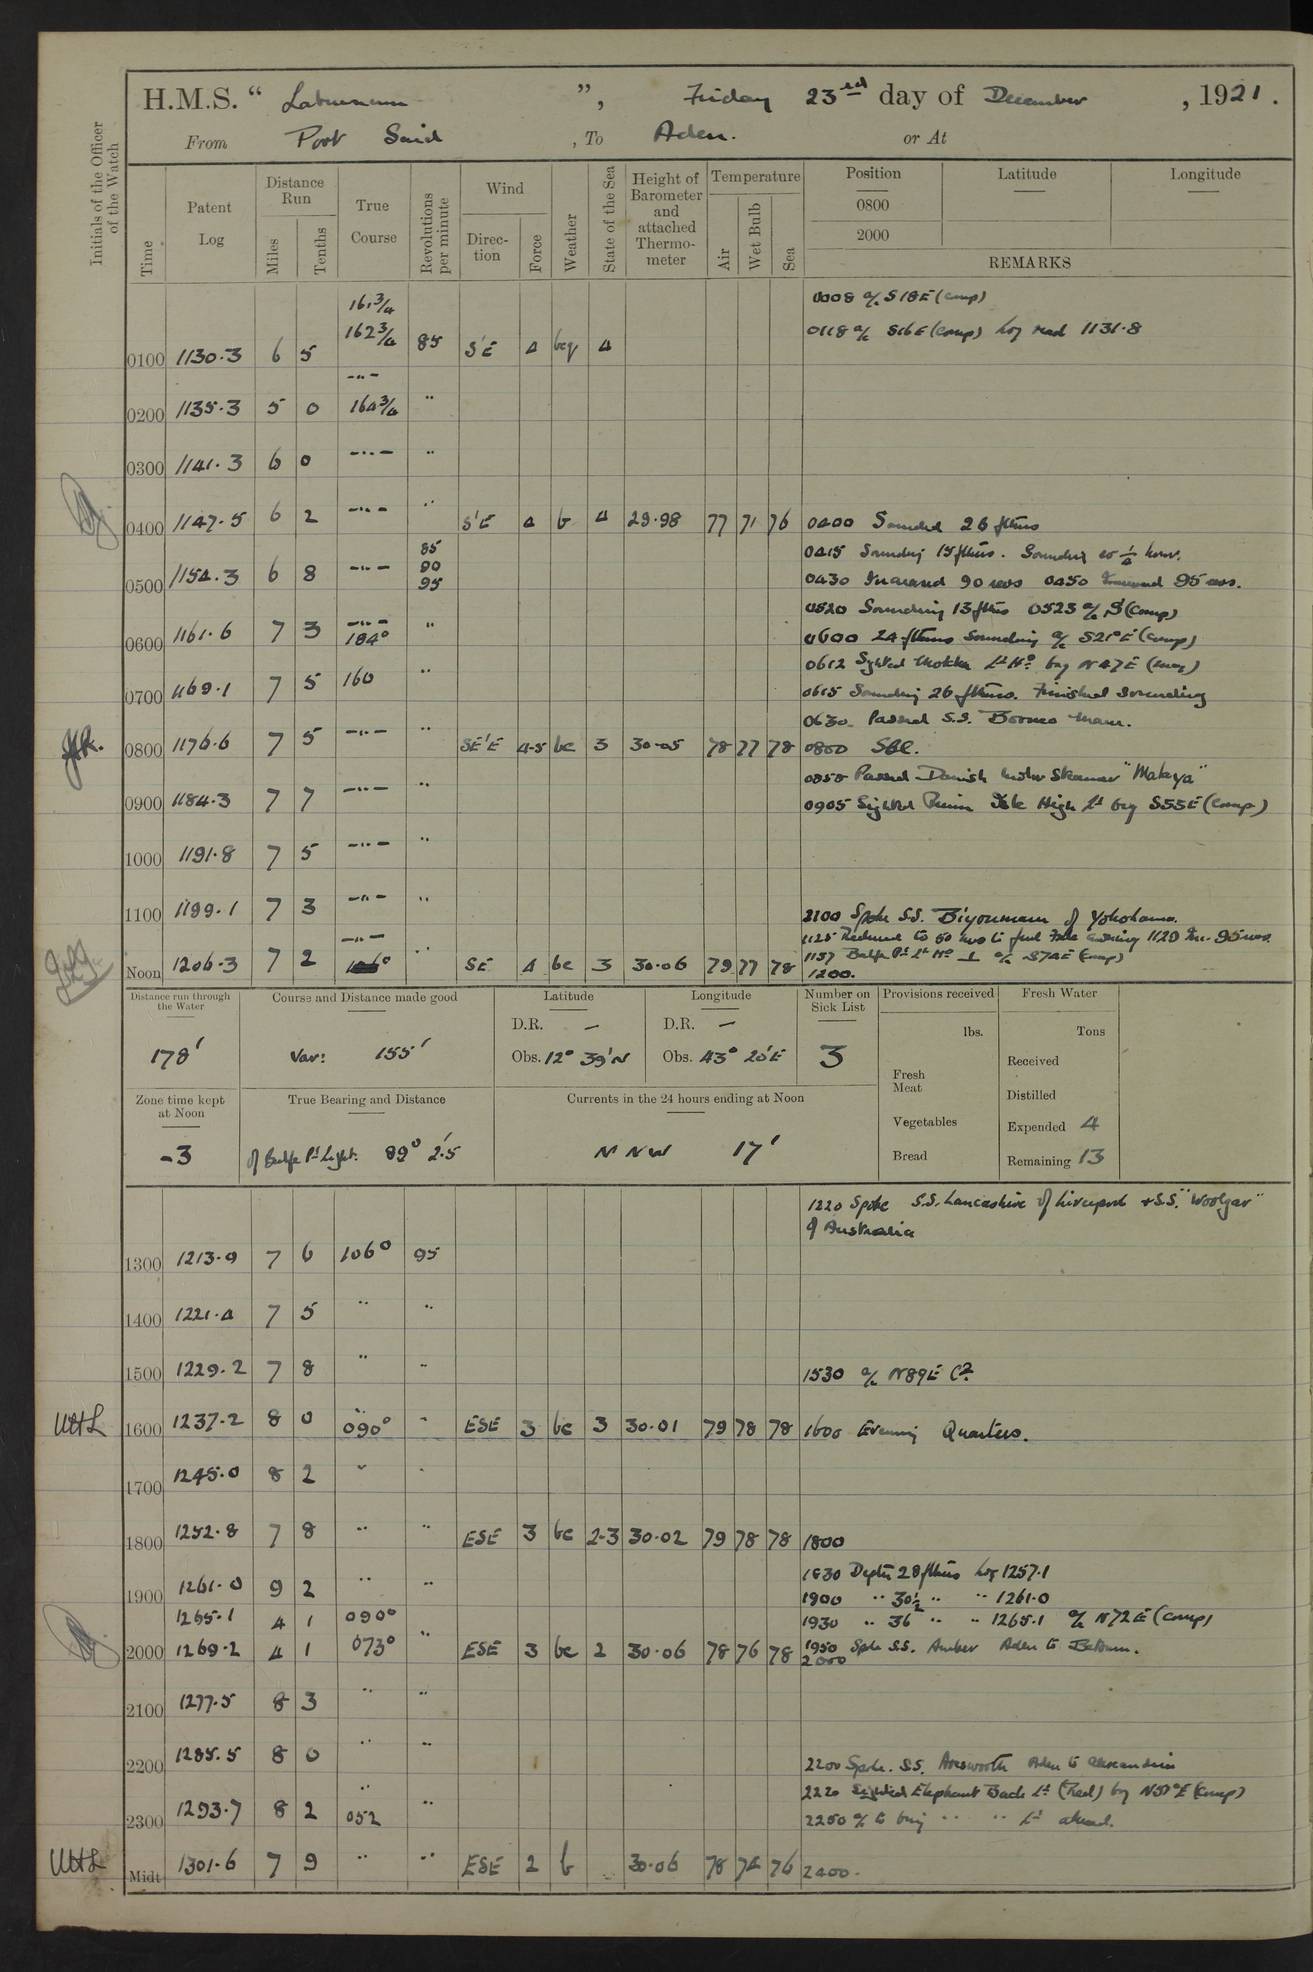 H.M.S. “ Laburnum ”, Friday 23rd day of December , 1921.
From Port Said , To Aden. or At
Initials of the Officer of the Watch
Time
Patent Log
Distance Run
Miles
Tenths
True Course
Revolutions per minute
Wind
Direc-tion
Force
Weather
State of the Sea
Height of Barometer and attached Thermo-meter
Temperature
Air
Wet Bulb
Sea
Position Latitude Longitude
0800
2000
REMARKS
161 3/4 0008 a/c S18E (comp)
162 3/4 0118 a/c S16E (comp) log read 1131.8
0100 1130.3 6 5 85 S'E 4 bcq 4
-"-
0200 1135.3 5 0 164 3/4 "
0300 1141.3 6 0 -"- "
0400 1147.5 6 2 -"- " S'E 4 b 4 29.98 77 71 76 0400 Sounded 26 fthms
85 0415 Sounding 15 fthms. Sounding ev 1/4 hour.
0500 1154.3 6 8 -"- 90 95 0430 Increased 90 revs 0450 Increased 95 revs.
0520 Sounding 13 fthms 0523 a/c S (comp)
0600 1161.6 7 3 -"- 184° " 0600 24 fthms sounding a/c S21°E (comp)
0612 Sighted Mokka Lt Ho brg N47E (comp)
0700 1169.1 7 5 160 " 0615 Sounding 26 fthms. Finished Sounding
0630 Passed S.S. Borneo Maru.
0800 1176.6 7 5 -"- " SE'E 4-5 bc 3 30.05 78 77 78 0800
0858 Passed Danish Motor Steamer "Malaya"
0900 1184.3 7 7 -"- " 0905 Sighted Perim Isle High Lt brg S55E (comp)
1000 1191.8 7 5 -"- "
1100 1199.1 7 3 -"- " 1100 Spoke S.S. of Yokohama.
-"- 1125 Reduced to 60 revs to 1129 Inc. 95 revs.
1157 Balfe Pt Lt Ho ⊥ a/c S74E (comp)
Noon 1206.3 7 2 " SE 4 bc 3 30.06 79 77 78 1200.
Distance run through the Water
178'
Course and Distance made good
Var: 155'
Latitude
D.R. —
Obs. 12° 39'N
Longitude
D.R. —
Obs. 43° 20'E
Number on Sick List
3
Provisions received
lbs.
Fresh Meat
Vegetables
Bread
Fresh Water
Tons
Received
Distilled
Expended 4
Remaining 13
Zone time kept at Noon
-3
True Bearing and Distance
of Balfe Pt Light. 89° 2'.5
Currents in the 24 hours ending at Noon
N N W 17'
1220 Spoke S.S. Lancashire of Liverpool + S.S. "Woolgar"
of Australia
1300 1213.9 7 6 106° 95
1400 1221.4 7 5 " "
1500 1229.2 7 8 " " 1530 a/c N89E Co.
WHL 1600 1237.2 8 0 " 090° " ESE 3 bc 3 30.01 79 78 78 1600 Evening Quarters.
1700 1245.0 8 2 " "
1800 1252.8 7 8 " " ESE 3 bc 2-3 30.02 79 78 78 1800
1830 Depth 28 fthms log 1257.1
1900 1261.0 9 2 " " 1900 " 30½ " " 1261.0
1265.1 4 1 090° 1930 " 36 " " 1265.1 a/c N72E (comp)
2000 1269.2 4 1 073° " ESE 3 bc 2 30.06 78 76 78 1950 Spoke S.S. Amber Aden to
2000
2100 1277.5 8 3 " "
2200 1285.5 8 0 " " 2200 Spoke. S.S. Aden to Alexandria
" 2220 Sighted Elephant Back Lt (Red) brg (comp)
2300 1293.7 8 2 052 " 2250 a/c to brg " " Lt ahead.
WHL Midt 1301.6 7 9 " " ESE 2 b 30.06 78 74 76 2400.